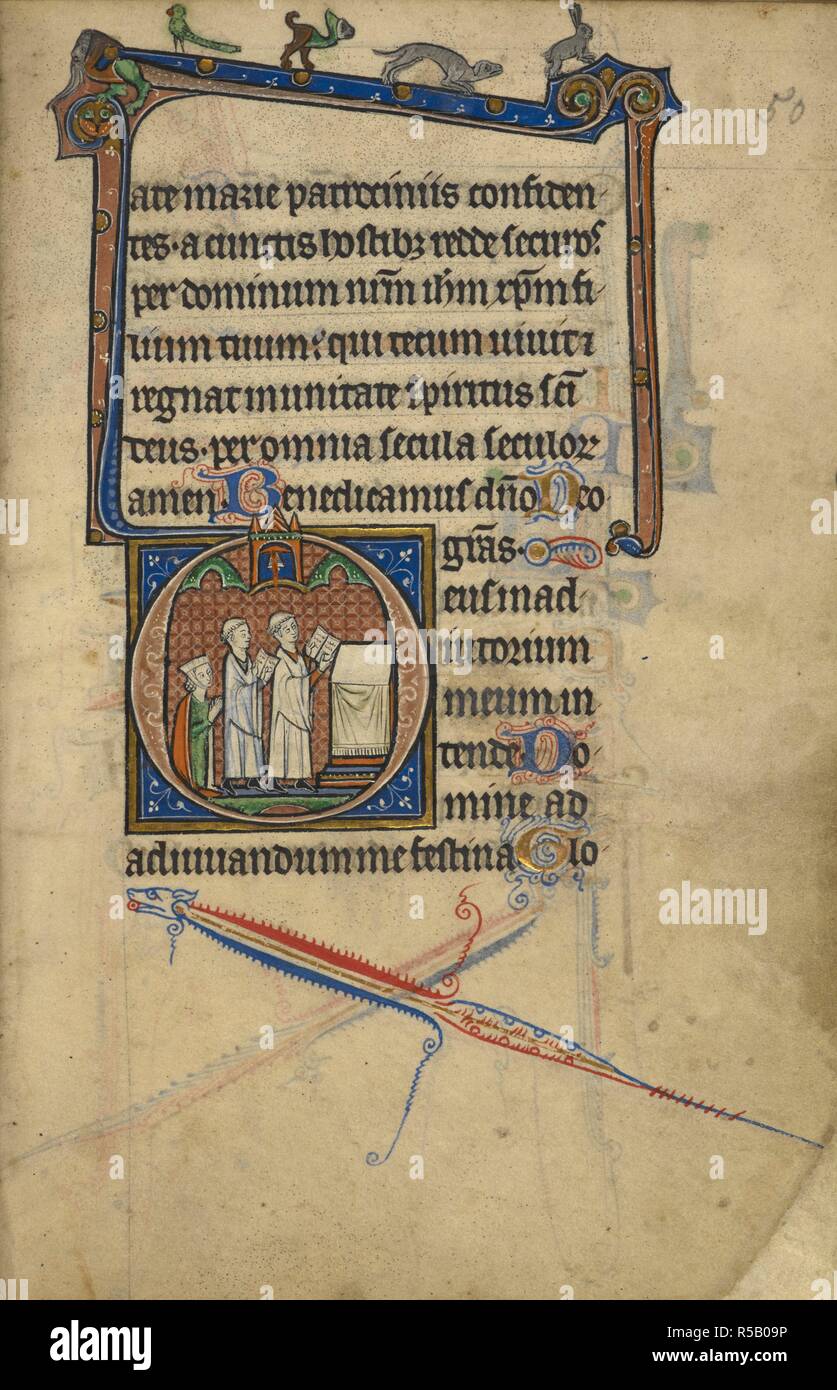 50
ate marie patrociniis confiden-
tes· a cunctis hostibꝫ redde securos
per dominum nr̄m ih̄m xp̄m fi-
lium tuum: qui tecum uiuit ⁊
regnat in unitate spiritus sc̄i
deus· per omnia secula seculoꝝ
amen. Benedicamus dn̄o Deo
gr̄as·
eus in ad-
iutorium
meum in
tende· Do-
mine ad
adiuuandum me festina Glo-
alamy
alamy
Image ID: R5B09P
www.alamy.com